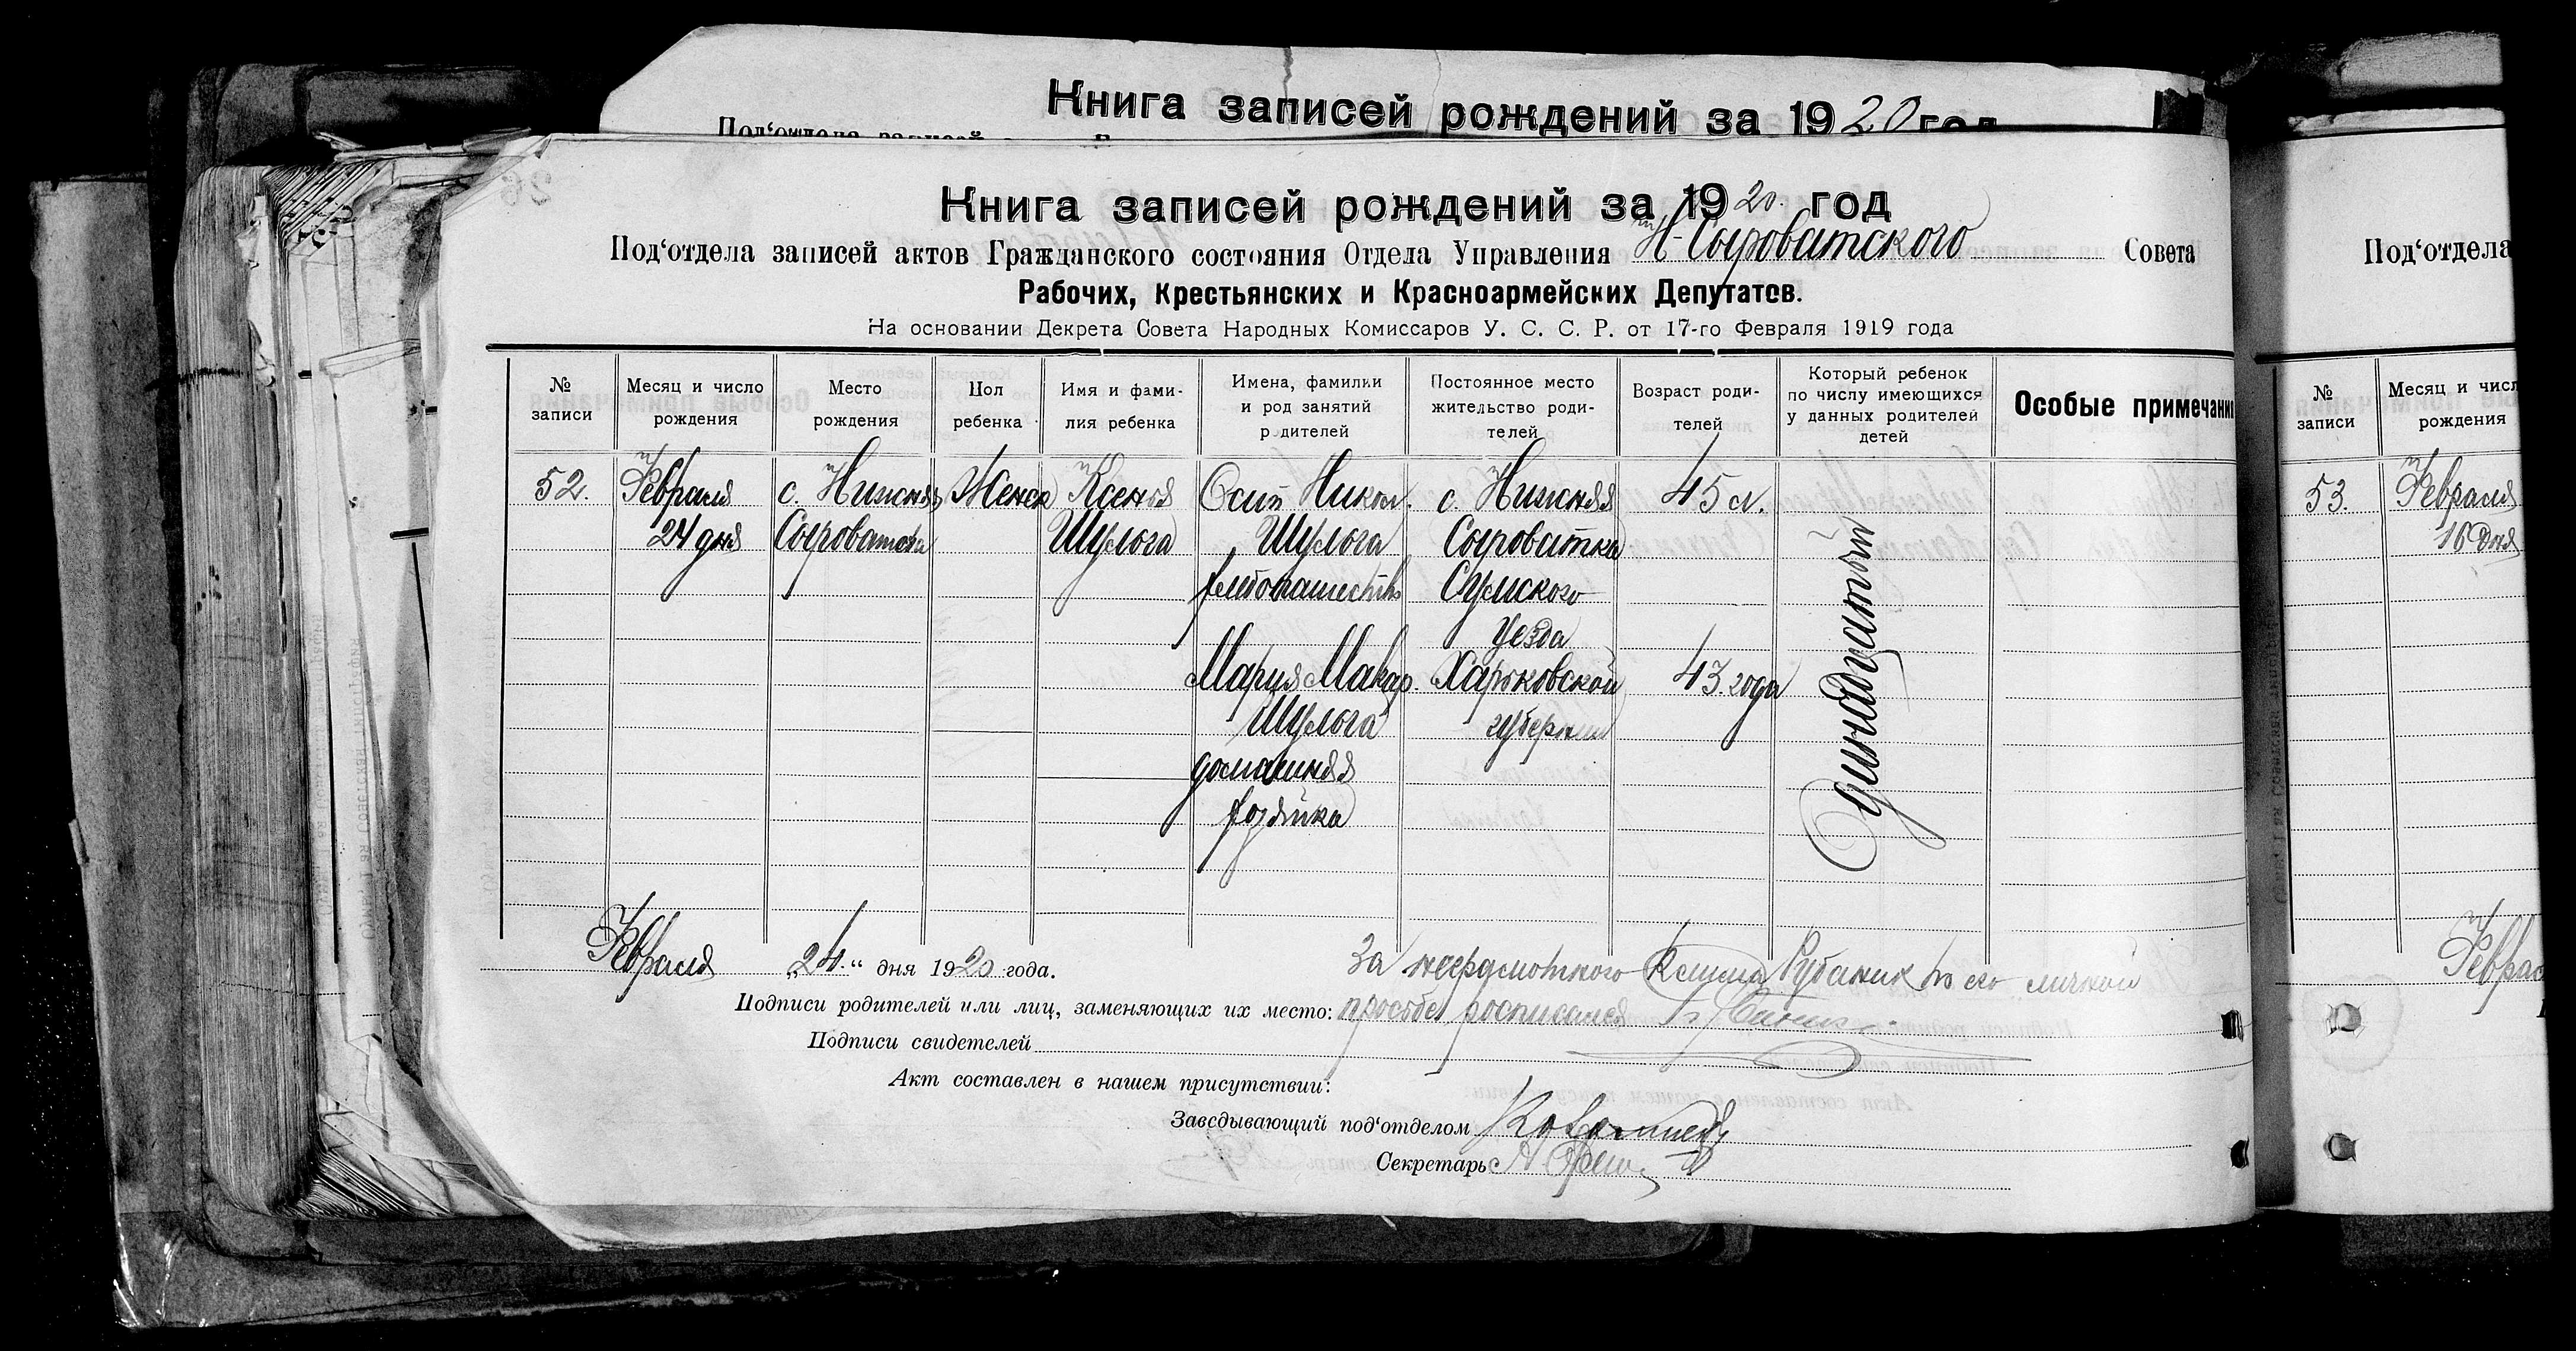 Книга записей рождений за 1920 год
Книга записей рождений за 1920. год
Под‘отдела записей актов Гражданского состояния Отдела Управления Н-Сыроватского Совета
Рабочих, Крестьянских и Красноармейских Депутатов.
На основании Декрета Совета Народных Комиссаров У. С. С. Р. от 17-го Февраля 1919 года
№ записи
Месяц и число рождения
Место рождения
Пол ребенка
Имя и фами-
лия ребенка
Имена, фамилии
и род занятий
родителей
Постоянное место
жительство роди-
телей
Возраст роди-
телей
Который ребенок
по числу имеющихся
у данных родителей
детей
Особые примечания
52.
Февраля
24 дня
с. Нижняя
Сыроватка
Женск
Ксения
Шулога
Осип Никол.
Шулога
хлебопашеств
Мария Макар.
Шулога
домашняя
хозяйка
с. Нижняя
Сыроватка
Сумского
Уезда
Харьковской
губернии
45 л.
43 года
Одинадцатый
Февраля „24.“ дня 1920 года.
За неграмотного Рубаник по его личной
Подписи родителей или лиц, заменяющих их место: просьбе росписался
Подписи свидетелей
Акт составлен в нашем присутствии:
Заведывающий под‘отделом
Секретарь
Под‘отдела
№ записи
Месяц и числ
рождения
53.
Февраля
16 дня
Феврас